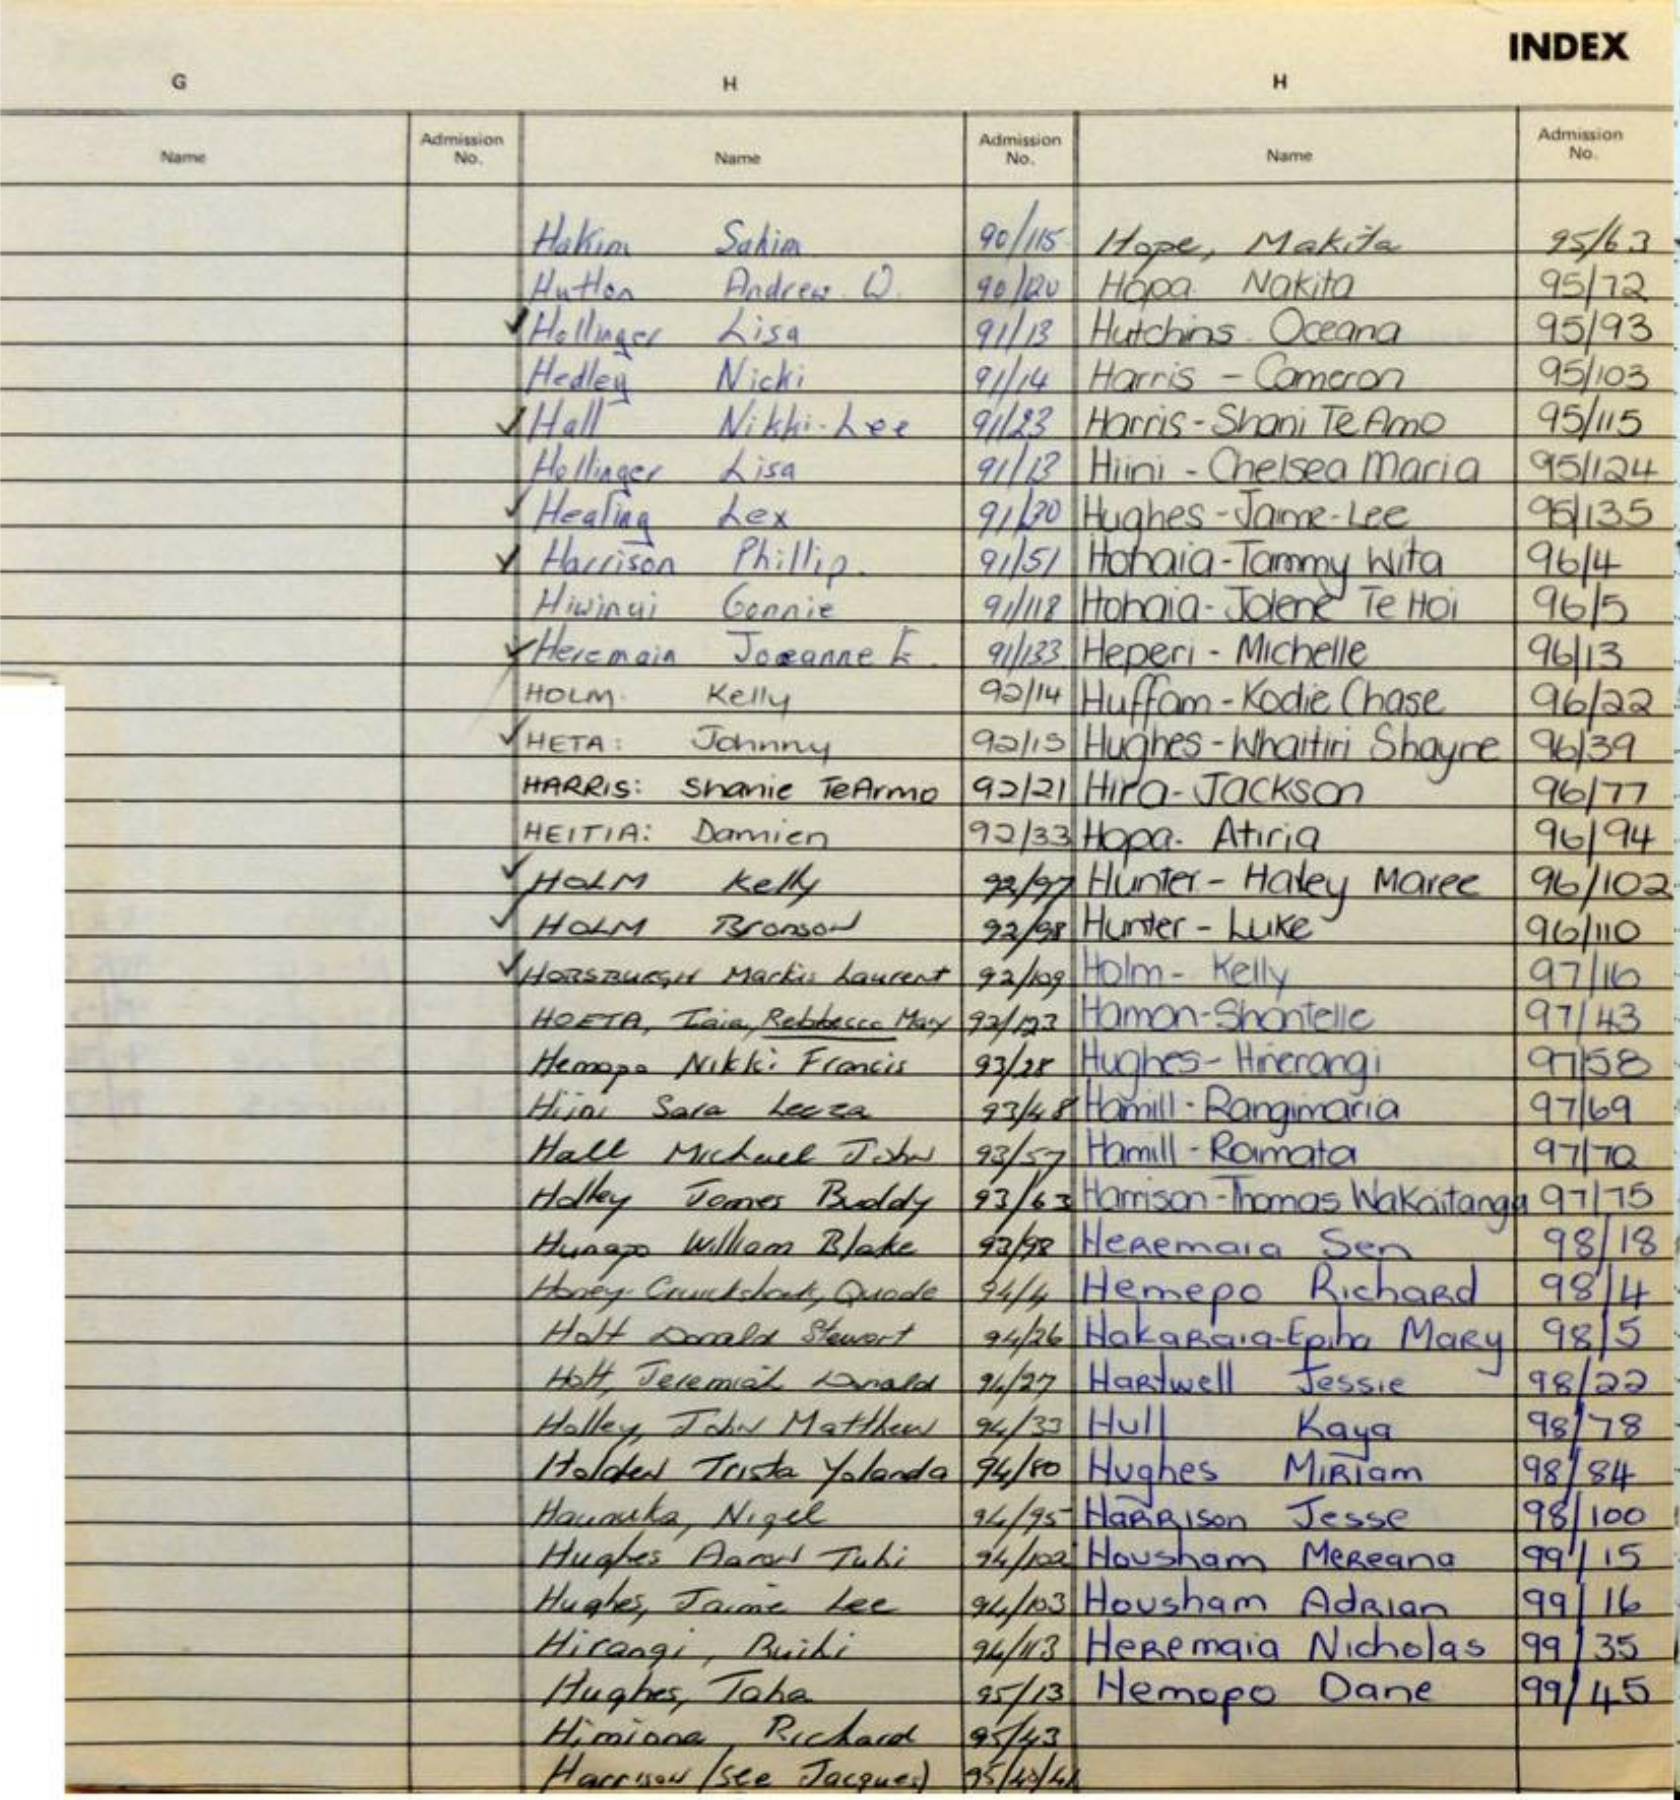 INDEX
G H H
Name Admission No. Name Admission No. Name Admission No.
Hakim Sahim 90/115
Hutton Andrew. W. 90/120
✓ Hollinger Lisa 91/13
Hedley Nicki 91/14
✓ Hall Nikki-Lee 91/23
Hollinger Lisa 91/13
✓ Healing Lex 91/30
✓ Harrison Phillip. 91/51
Hiwinui Connie 91/118
✓ Heremain Joeanne E. 91/133
HOLM. Kelly 92/14
✓ HETA: Johnny 92/15
HARRIS: Shanie TeArmo 92/21
HEITIA: Damien 92/33
✓ HOLM Kelly 92/97
✓ HOLM Bronson 92/98
✓ HORSBURGH Markis Laurent 92/109
HOETA, Taia, Rebbecca May 92/123
Hemopo Nikki Francis 93/28
Hiini Sara Leeza 93/48
Hall Michael John 93/57
Holley James Buddy 93/63
Hungapo William Blake 93/98
Honey-Cruickshank, Quade 94/4
Holt Donald Stewart 94/26
Holt, Jeremiah Donald 94/27
Holley, John Matthew 94/33
Holden Trista Yolanda 94/80
Haumuka, Nigel 94/95
Hughes Aaron Tuhi 94/102
Hughes, Jaime Lee 94/103
Hirangi, Ruihi 94/113
Hughes, Taha 95/13
Himiona, Richard 95/43
Harrison (see Jacques) 95/40/41
Hope, Makita 95/63
Hopa Nakita 95/72
Hutchins. Oceana 95/93
Harris - Cameron 95/103
Harris - Shani Te Amo 95/115
Hiini - Chelsea Maria 95/124
Hughes - Jaime-Lee 95/135
Hohaia - Tammy Wita 96/4
Hohaia - Jolene Te Hoi 96/5
Heperi - Michelle 96/13
Huffam - Kodie Chase 96/22
Hughes - Whaitiri Shayre 96/39
Hira - Jackson 96/77
Hopa. Atiria 96/94
Hunter - Haley Maree 96/102
Hunter - Luke 96/110
Holm - Kelly 97/16
Hamon - Shontelle 97/43
Hughes - Hinerangi 97/58
Hamill - Rangimaria 97/69
Hamill - Raimata 97/70
Harrison - Thomas Wakaitanga 97/75
Heremaia Sen 98/18
Hemepo Richard 98/4
Hakaraia-Epiha Mary 98/5
Hartwell Jessie 98/22
Hull Kaya 98/78
Hughes Miriam 98/84
Harrison Jesse 98/100
Housham Mereana 99/15
Housham Adrian 99/16
Heremaia Nicholas 99/35
Hemopo Dane 99/45